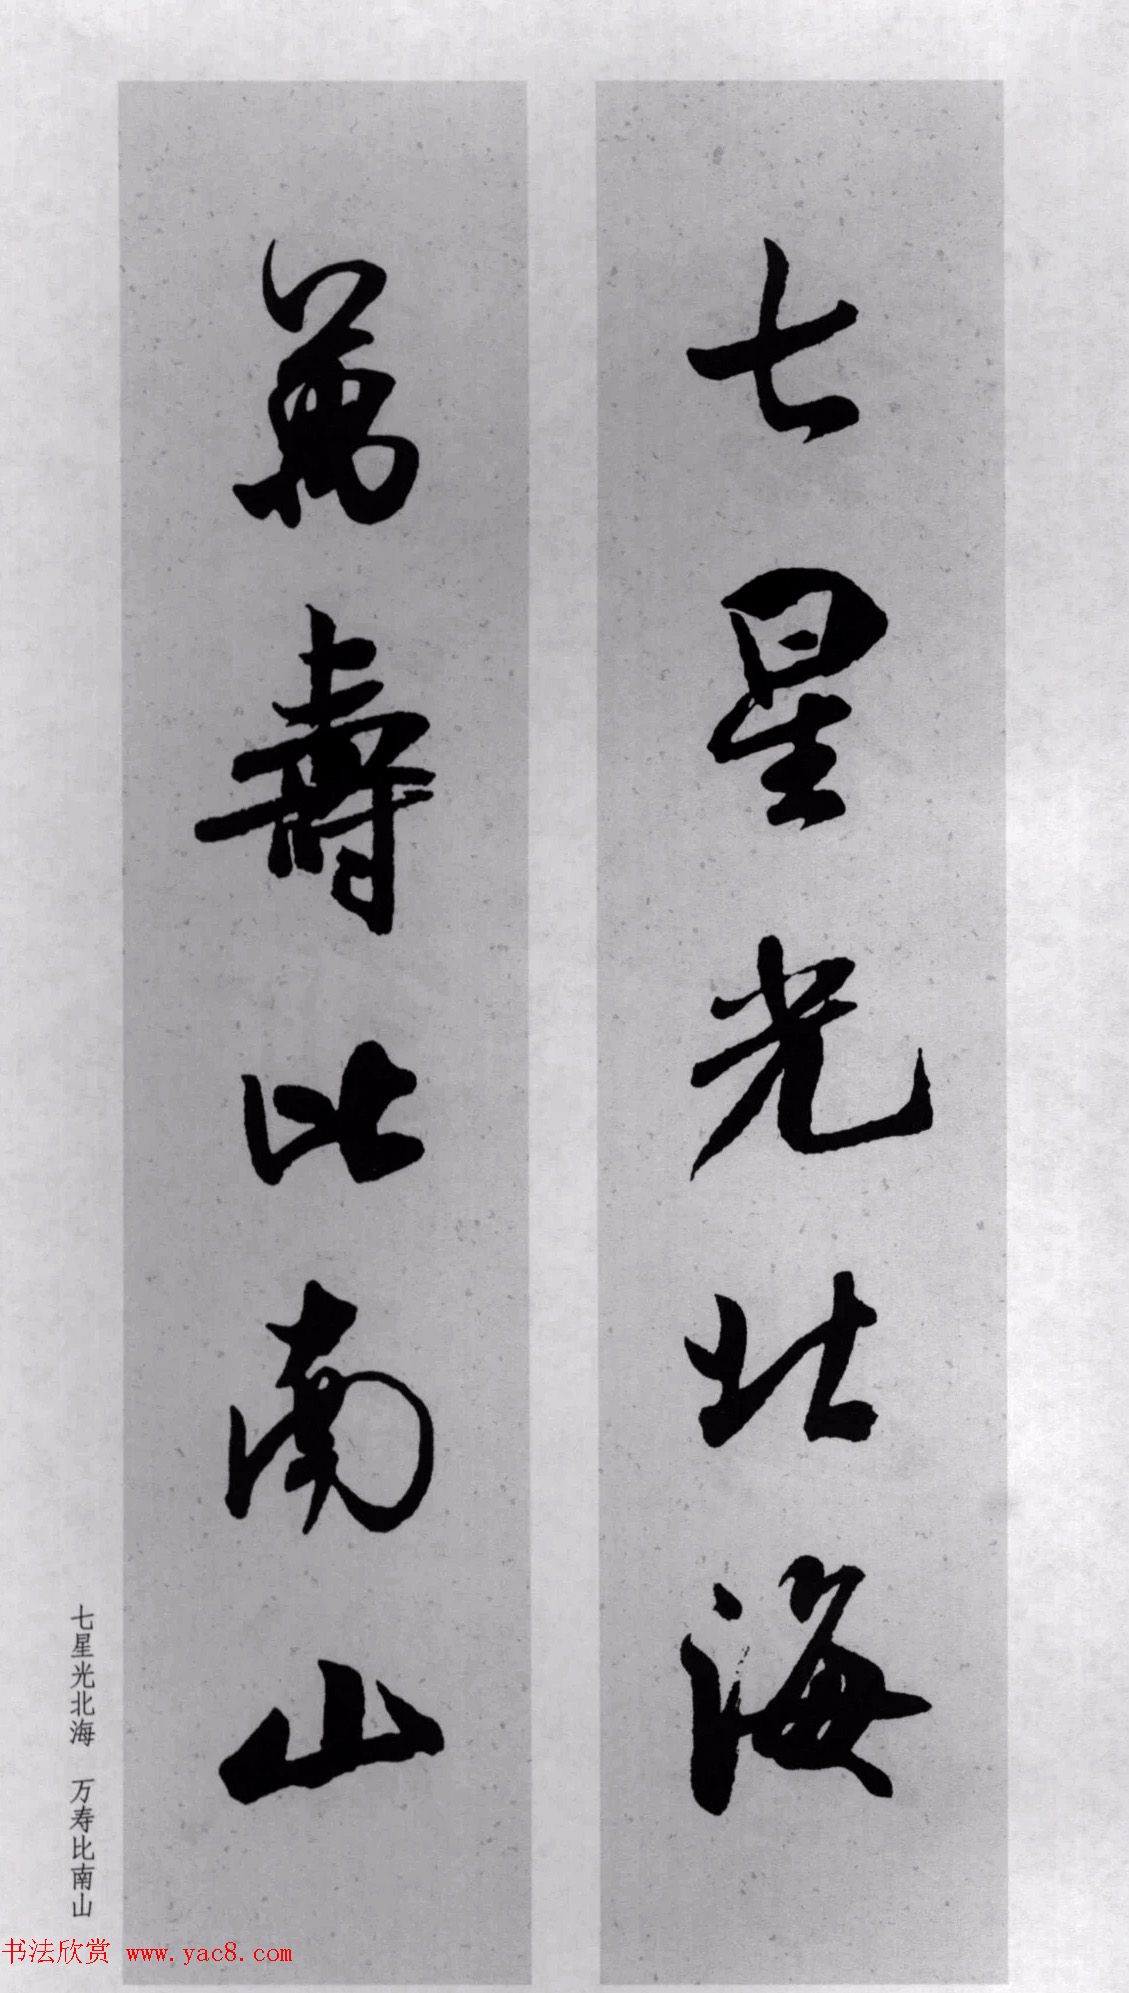 七星光北海
萬壽比南山
七星光北海 万寿比南山
书法欣赏 www.yac8.com